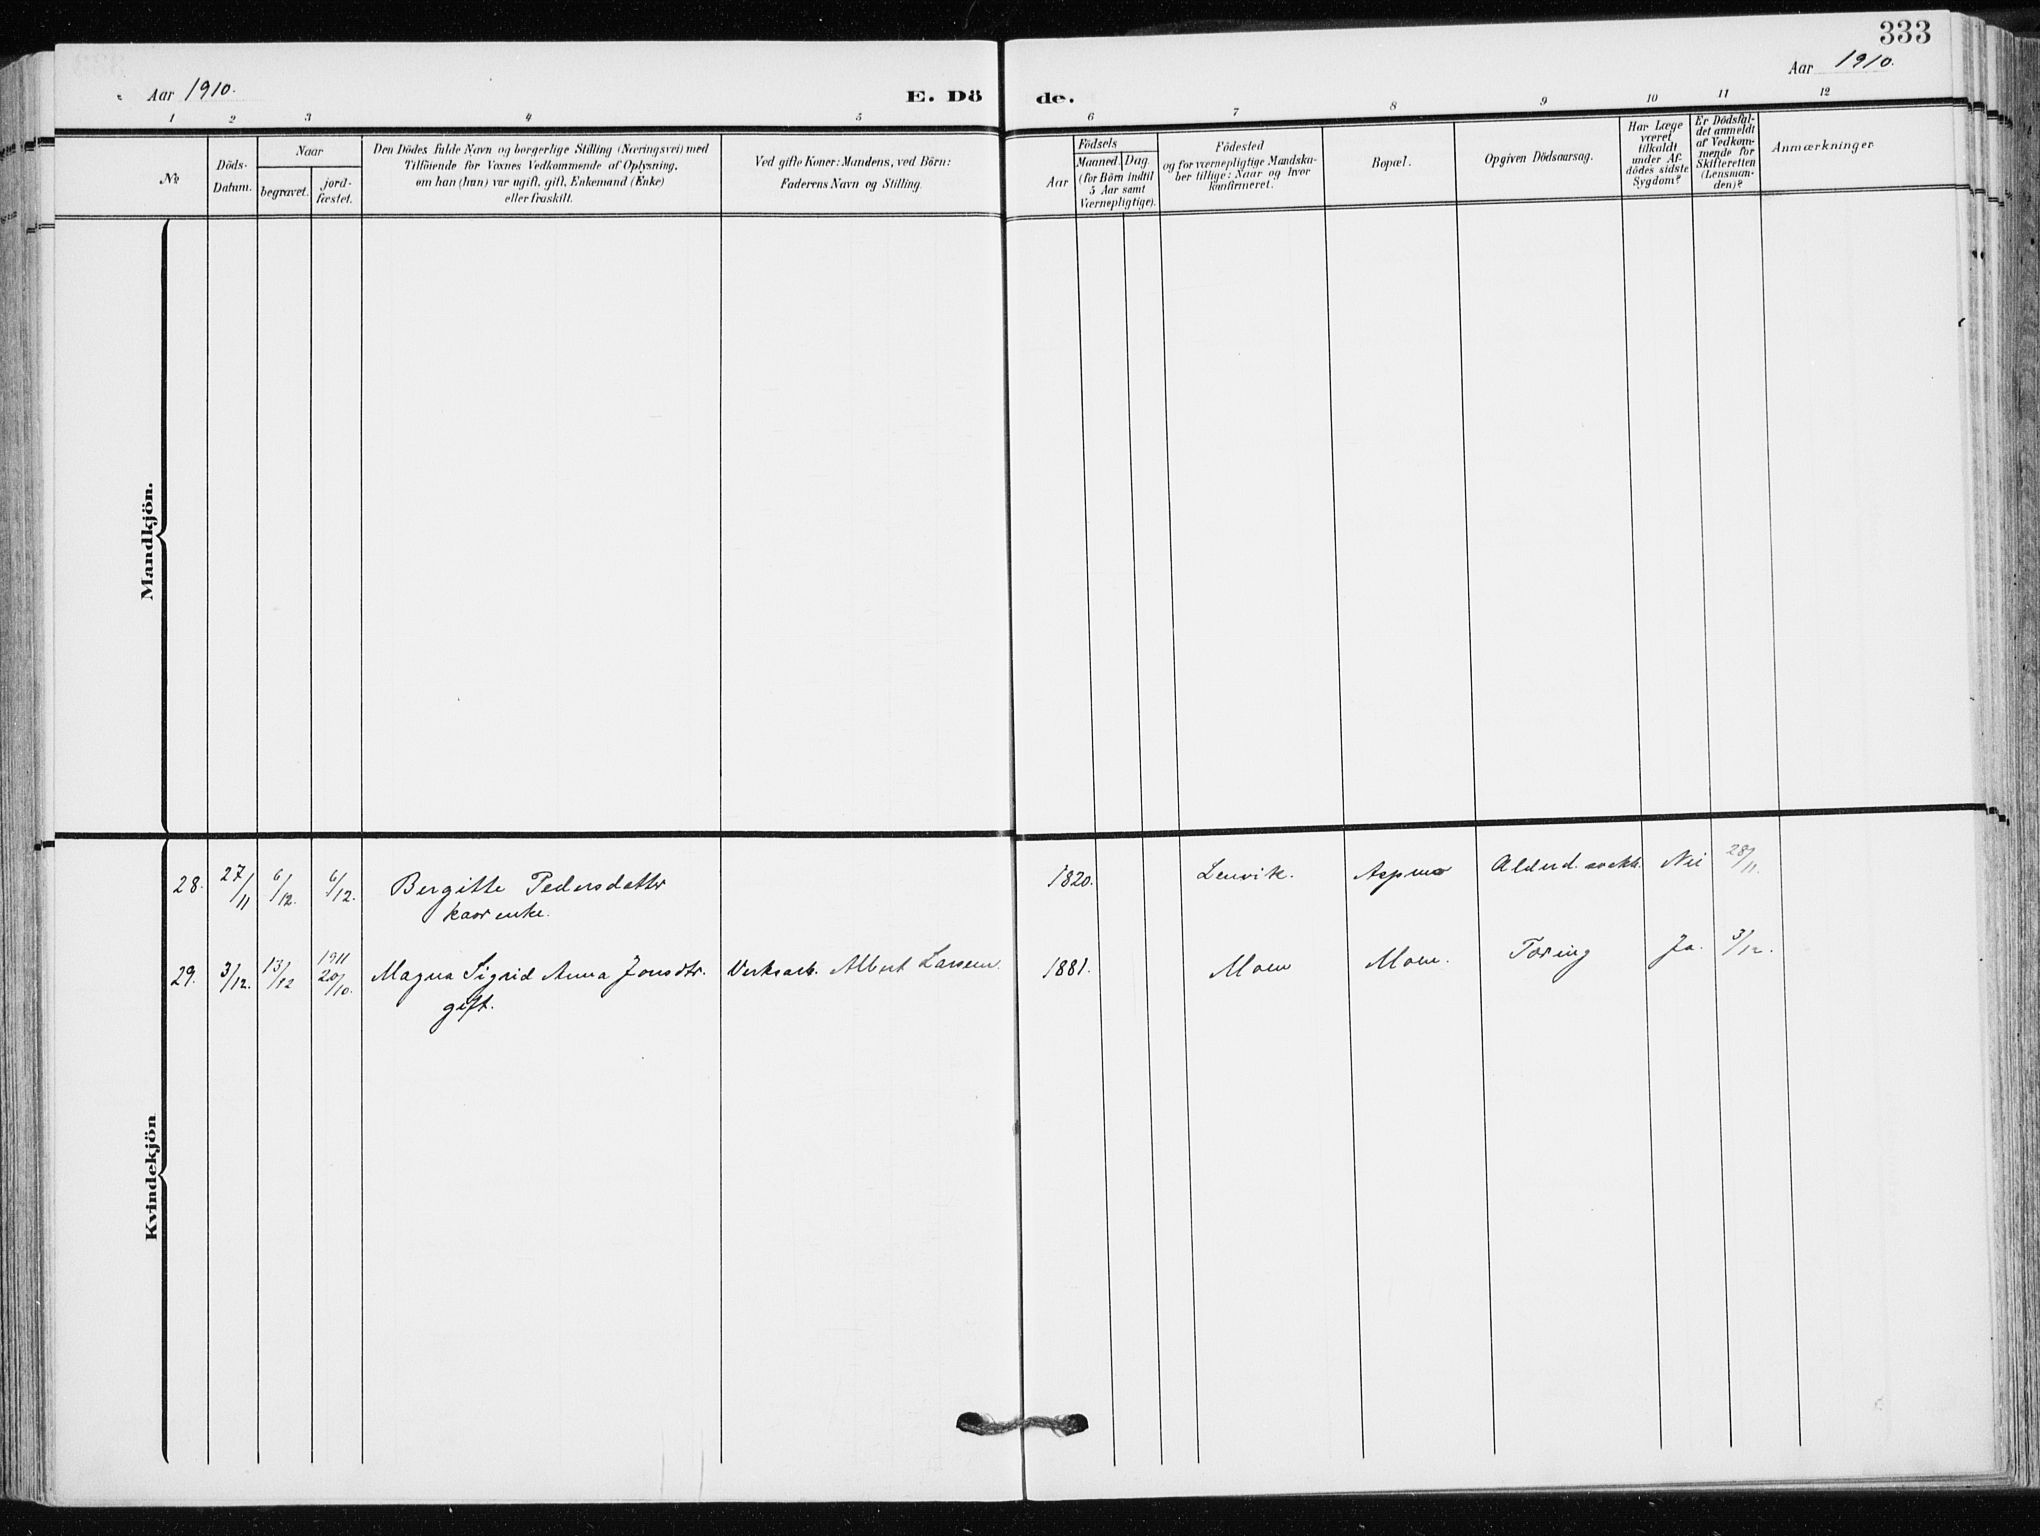 333
Aar 1910.
E. Dö de.
Aar 1910.
1 2 3 4 5 6 7 8 9 10 11 12
№
Döds-
Datum.
Naar
begravet.
jord-
fæstet.
Den Dödes fulde Navn og borgerlige Stilling (Næringsvei) med
Tilföiende for Voxnes Vedkommende af Oplysning,
om han (hun) var ugift, gift, Enkemand (Enke)
eller fraskilt.
Ved gifte Koner: Mandens, ved Börn:
Faderens Navn og Stilling.
Födsels
Aar
Maaned.
Dag.
(for Börn indtil
5 Aar samt
Værnepligtige).
Födested
og for værnepligtige Mandska-
ber tillige: Naar og hvor
konfirmeret.
Bopæl.
Opgiven Dödsaarsag.
Har Læge
været
tilkaldt
under Af-
dödes sidste
Sygdom?
Er Dödsfal-
det anmeldt
af Vedkom-
mende for
Skifteretten
(Lensman-
den)?
Anmærkninger
Mandkjön.
Kvindekjön
28. 27/11 6/12. 6/12. Bergitte Pedersdatter 1820. Lenvik. Aspmo Alderd. svækk. Nei 28/11.
kaarenke.
29. 3/12. 13/12 1911 20/10. Magna Sigrid Anna Jonsdtr. Verksarb. Albert Larsen. 1881. Moen Moen. Tæring Ja. 3/12.
gift.